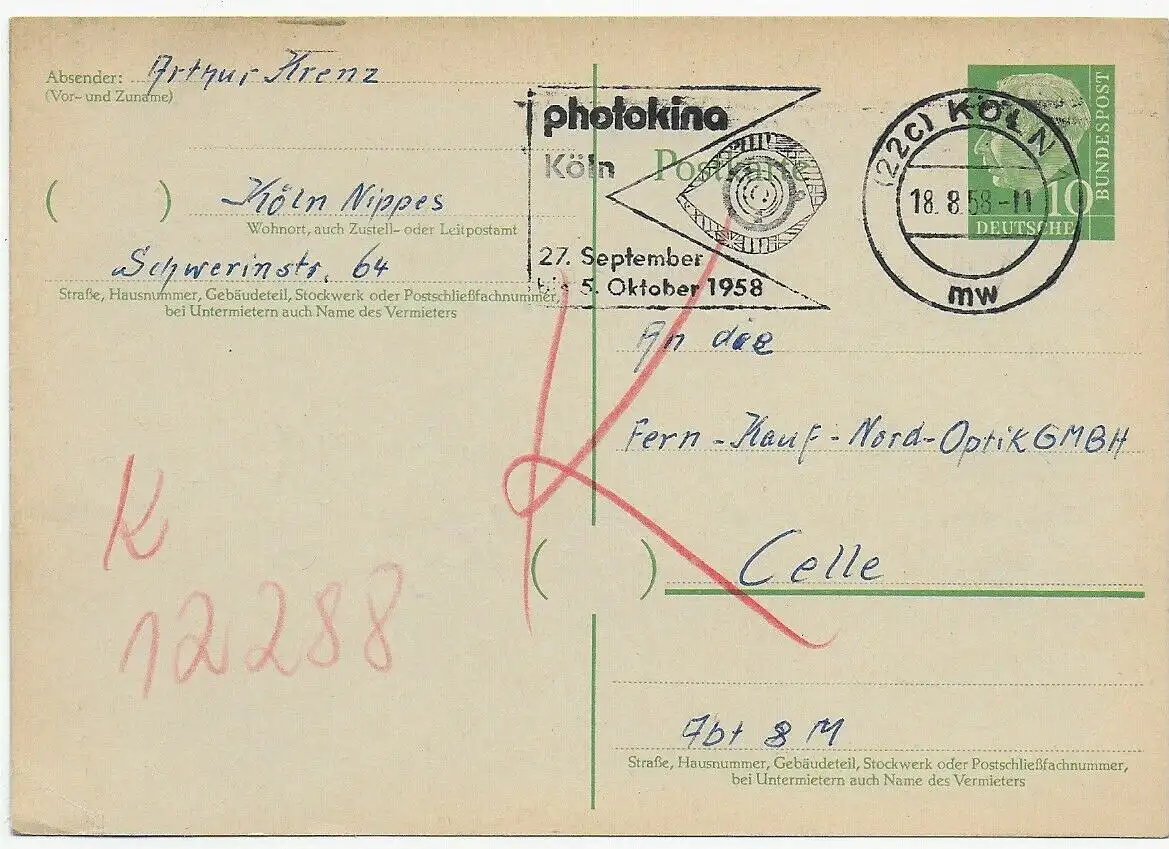 Absender: Arthur Krenz
(Vor- und Zuname)
( ) Köln Nippes
Wohnort, auch Zustell- oder Leitpostamt
Schwerinstr. 64
Straße, Hausnummer, Gebäudeteil, Stockwerk oder Postschließfachnummer,
bei Untermietern auch Name des Vermieters
photokina
Köln
27. September
bis 5. Oktober 1958
Postkarte
(22c) KÖLN 1
18. 8. 58 - 11
mw
10
DEUTSCHE
BUNDESPOST
An die
Fern - Kauf - Nord - Optik GMBH
( ) Celle
Abt 8 M
Straße, Hausnummer, Gebäudeteil, Stockwerk oder Postschließfachnummer,
bei Untermietern auch Name des Vermieters
K
K
12288